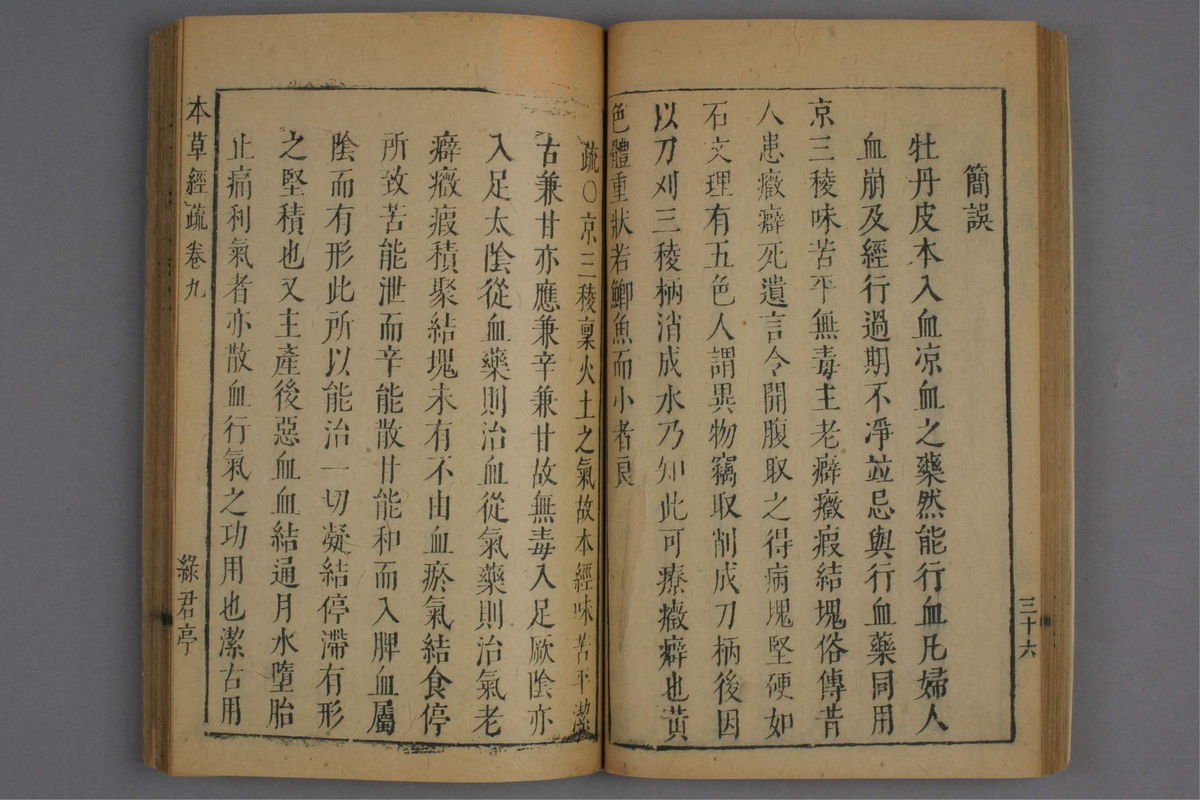 三十六
簡誤
牡丹皮本入血凉血之藥然能行血凡婦人
血崩及經行過期不淨並忌與行血藥同用
京三稜味苦平無毒主老癖癥瘕結塊俗傳昔
人患癥癖死遺言令開腹取之得病塊堅硬如
石文理有五色人謂異物竊取削成刀柄後因
以刀刈三稜柄消成水乃知此可療癥癖也黃
色體重狀若鯽魚而小者良
疏〇京三稜稟火土之氣故本經味苦平潔
古兼甘亦應兼辛兼甘故無毒入足厥陰亦
入足太陰從血藥則治血從氣藥則治氣老
癖癥瘕積聚結塊未有不由血瘀氣結食停
所致苦能泄而辛能散甘能和而入脾血屬
陰而有形此所以能治一切凝結停滯有形
之堅積也又主產後惡血血結通月水墮胎
止痛利氣者亦散血行氣之功用也潔古用
本草經疏 卷九
綠君亭